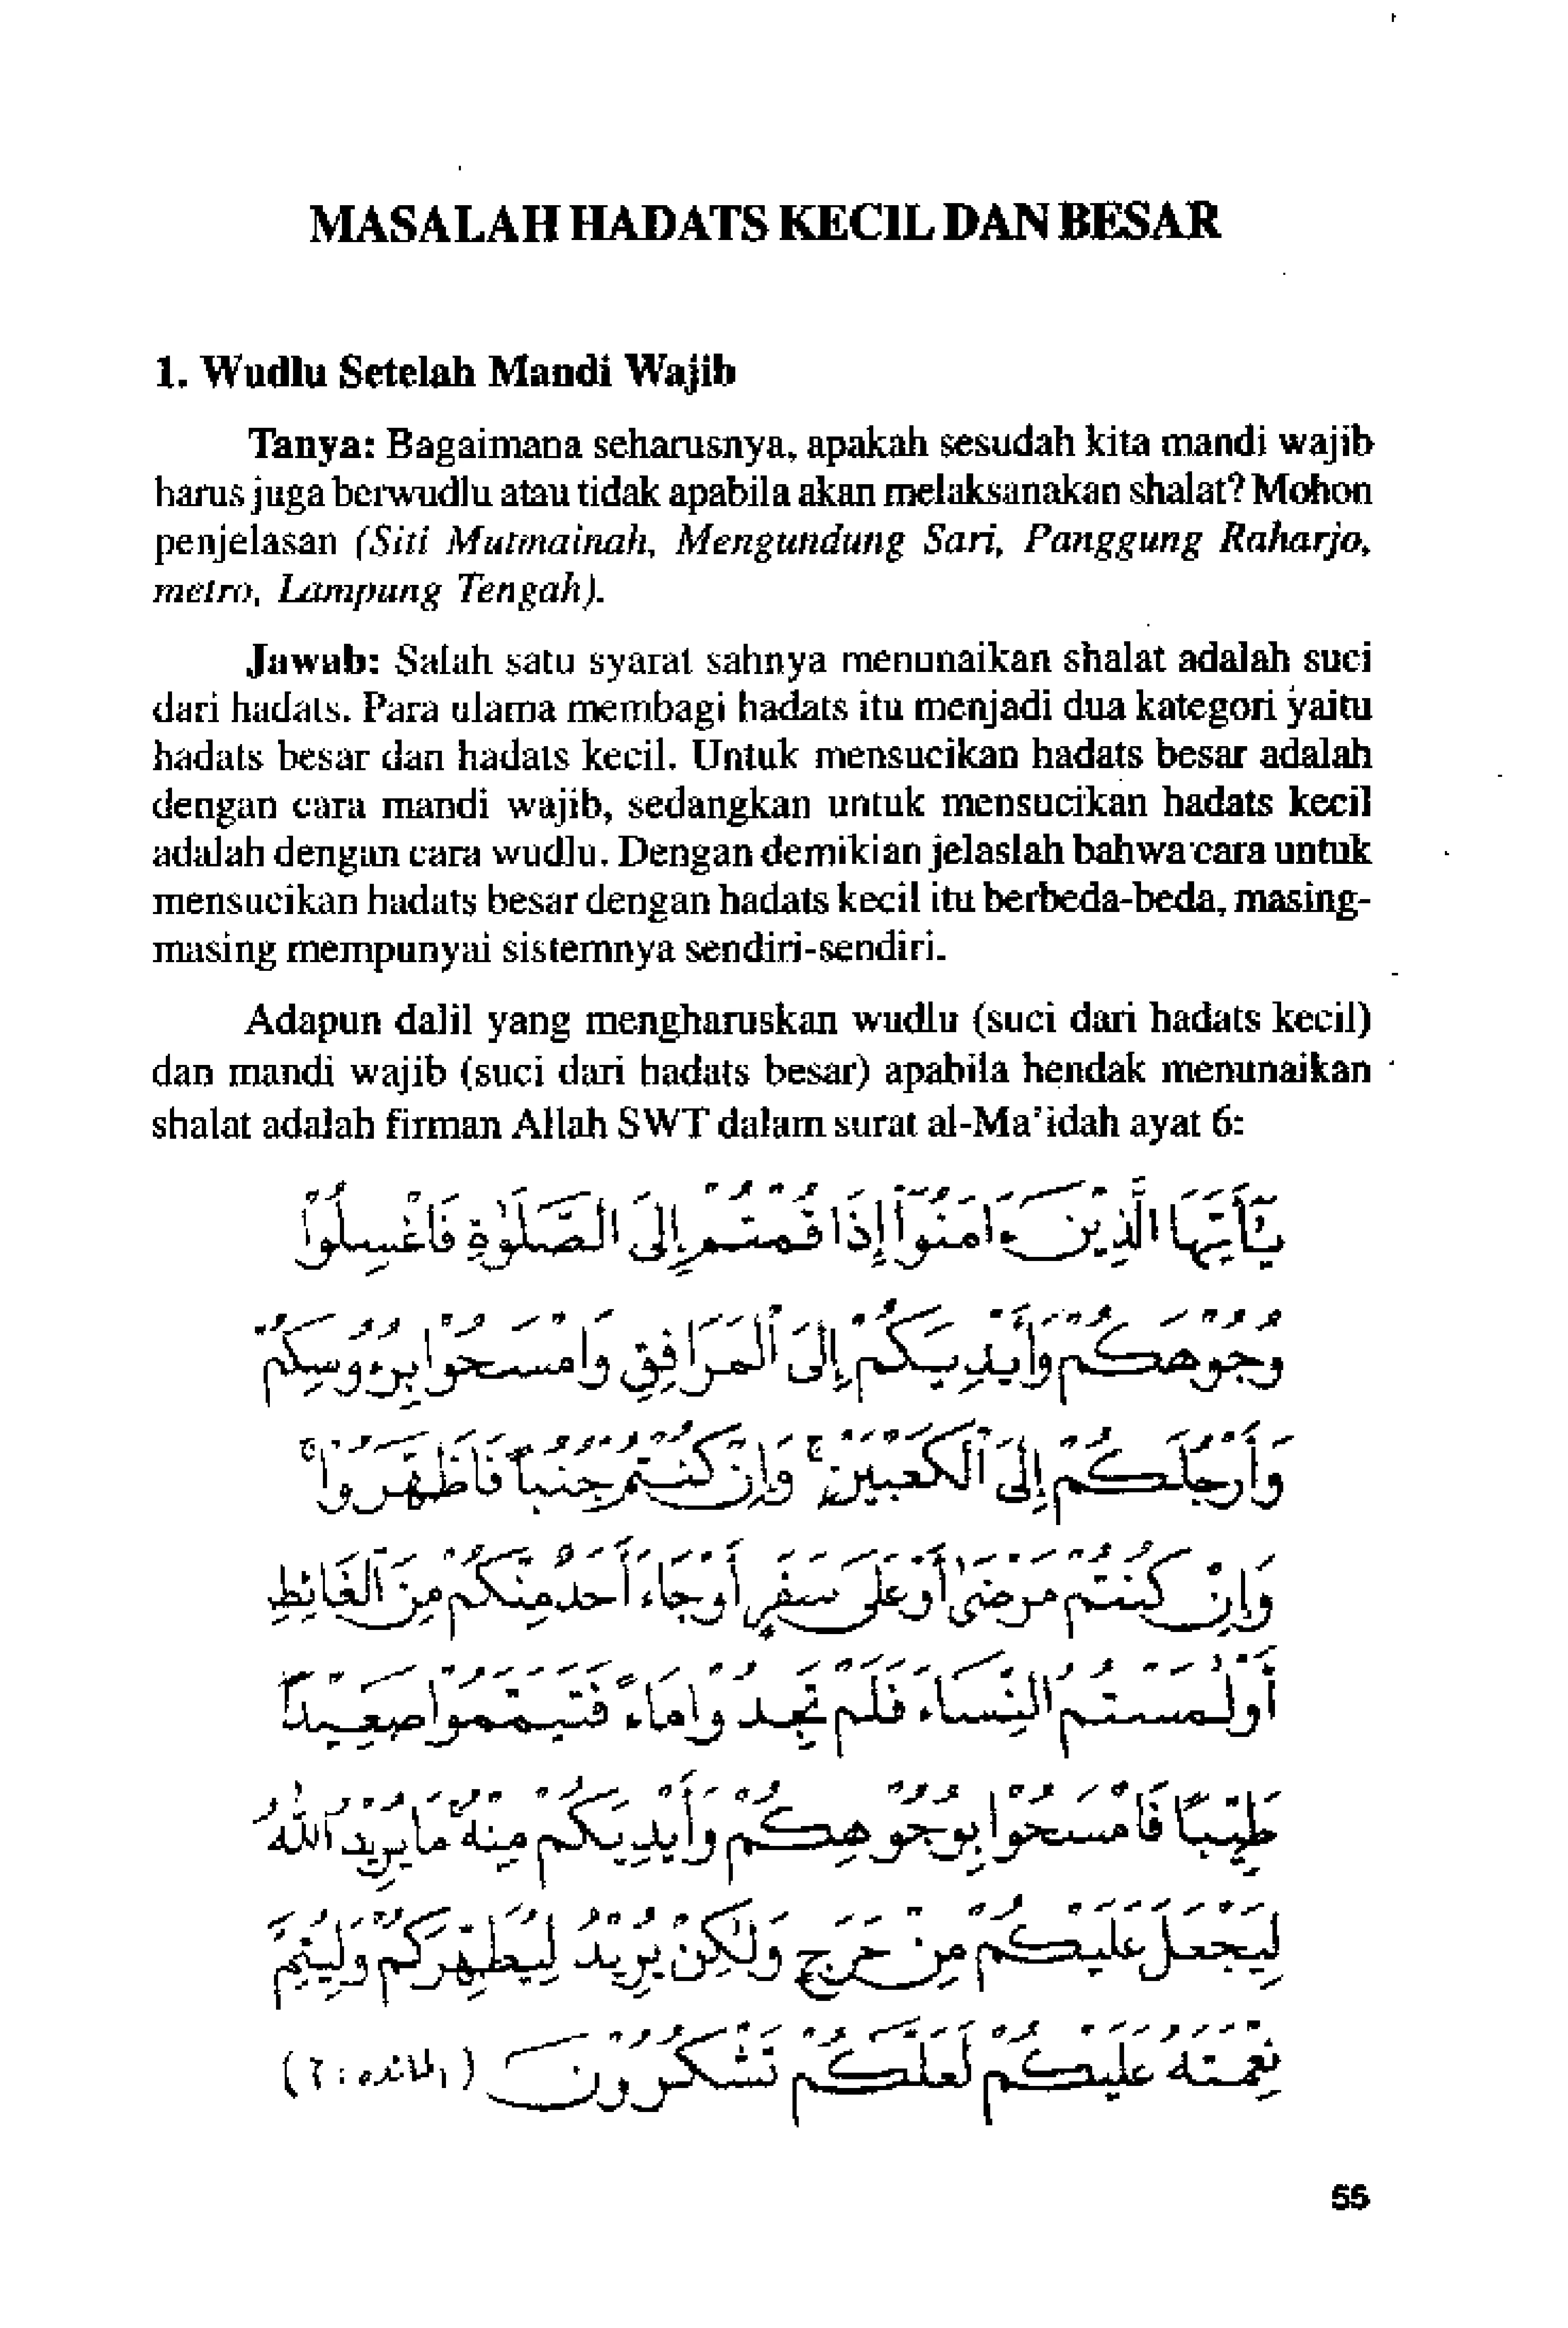 MASALAH HADATS KECIL DAN BESAR
1. Wudlu Setelah Mandi Wajib
Tanya: Bagaimana seharusnya, apakah sesudah kita mandi wajib
harus juga berwudlu atau tidak apabila akan melaksanakan shalat? Mohon
penjelasan (Siti Mutmainah, Mengundung Sari, Panggung Raharjo,
metro, Lampung Tengah).
Jawab: Salah satu syarat sahnya menunaikan shalat adalah suci
dari hadats. Para ulama membagi hadats itu menjadi dua kategori yaitu
hadats besar dan hadats kecil. Untuk mensucikan hadats besar adalah
dengan cara mandi wajib, sedangkan untuk mensucikan hadats kecil
adalah dengan cara wudlu. Dengan demikian jelaslah bahwa cara untuk
mensucikan hadats besar dengan hadats kecil itu berbeda-beda, masing-
masing mempunyai sistemnya sendiri-sendiri.
Adapun dalil yang mengharuskan wudlu (suci dari hadats kecil)
dan mandi wajib (suci dari hadats besar) apabila hendak menunaikan
shalat adalah firman Allah SWT dalam surat al-Ma'idah ayat 6:
يَٰٓأَيُّهَا الَّذِيْنَ ءَامَنُوْٓا إِذَا قُمْتُمْ إِلَى الصَّلَوٰةِ فَاغْسِلُوْا
وُجُوْهَكُمْ وَأَيْدِيَكُمْ إِلَى ٱلْمَرَافِقِ وَامْسَحُوْا بِرُءُوسِكُمْ
وَأَرْجُلَكُمْ إِلَى ٱلْكَعْبَيْنِ ۚ وَإِنْ كُنْتُمْ جُنُبًا فَاطَّهَّرُوْا ۚ
وَإِنْ كُنْتُمْ مَرْضَىٰٓ أَوْ عَلَىٰ سَفَرٍ أَوْ جَاءَ أَحَدٌ مِّنْكُمْ مِنَ ٱلْغَائِطِ
أَوْ لَٰمَسْتُمُ النِّسَاءَ فَلَمْ تَجِدُوْا مَاءً فَتَيَمَّمُوْا صَعِيْدًا
طَيِّبًا فَامْسَحُوْا بِوُجُوْهِكُمْ وَأَيْدِيَكُمْ مِنْهُ مَا يُرِيْدُ ٱللَّٰهُ
لِيَجْعَلَ عَلَيْكُمْ مِنْ حَرَجٍ وَلَٰكِنْ يُرِيْدُ لِيُطَهِّرَكُمْ وَلِيُتِمَّ
نِعْمَتَهُ عَلَيْكُمْ لَعَلَّكُمْ تَشْكُرُوْنَ (المائده : ٦)
55